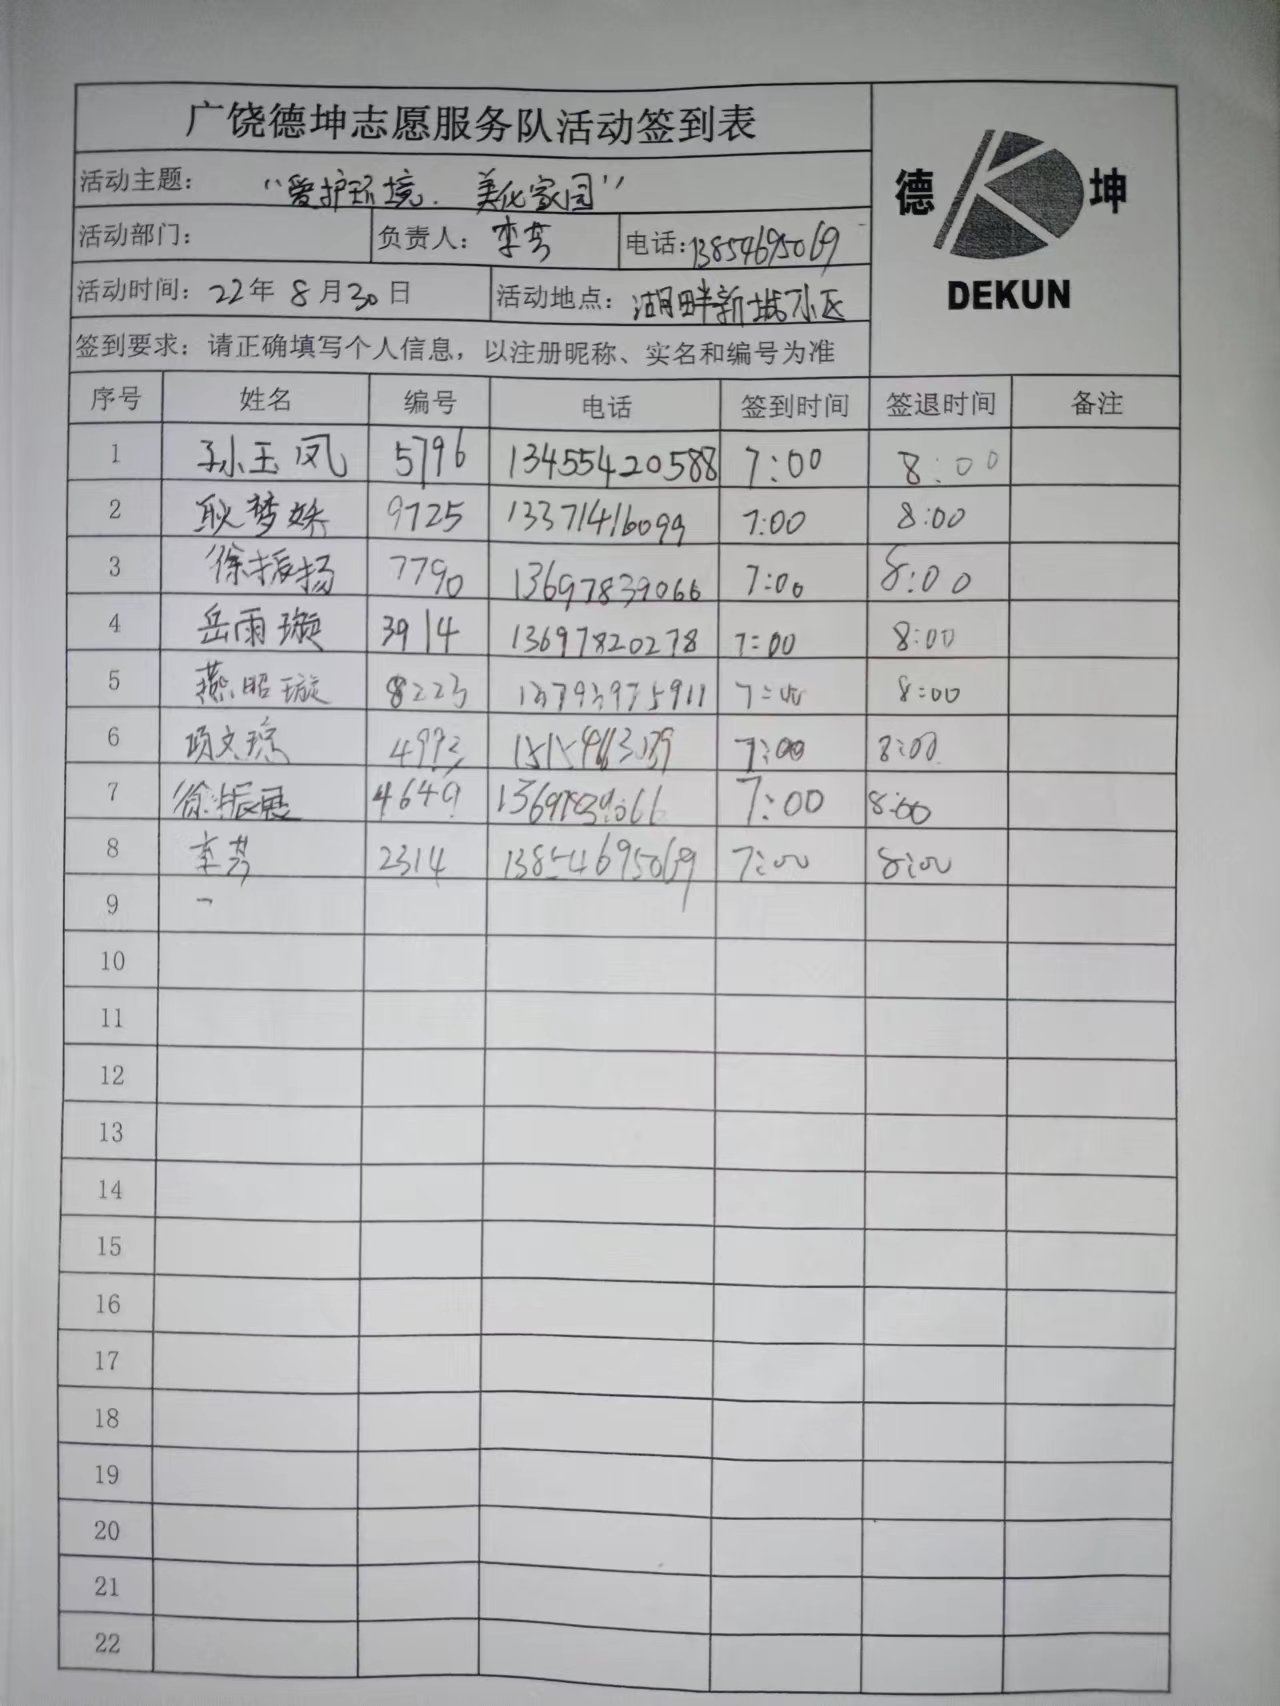 广饶德坤志愿服务队活动签到表
德 坤
DEKUN
活动主题： “爱护环境．美化家园”
活动部门： 负责人：李芳 电话:13854695069
活动时间：22年 8月30日 活动地点：湖畔新城小区
签到要求：请正确填写个人信息，以注册昵称、实名和编号为准
序号 姓名 编号 电话 签到时间 签退时间 备注
1 孙玉凤 5796 13455420588 7:00 8:00
2 耿梦娇 9725 13371416099 7:00 8:00
3 徐振扬 7790 13697839066 7:00 8:00
4 岳雨璇 3914 13697820278 7:00 8:00
5 燕昭璇 8223 13793975911 7:00 8:00
6 项文琼 4993 7:00 8:00
7 徐振展 4649 13697839066 7:00 8:00
8 李芳 2314 13854695069 7:00 8:00
9
10
11
12
13
14
15
16
17
18
19
20
21
22